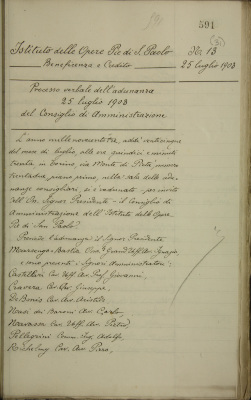 591
Istituto delle Opere Pie di S. Paolo
Beneficenza e Credito
N. 13
25 luglio 1903
Processo verbale dell'adunanza
25 luglio 1903
del Consiglio di Amministrazione
L'anno millenovecentotre, addì venticinque
del mese di luglio, alle ore quindici e minuti
trenta in Torino via Monte di Pietà, numero
trentadue, piano primo, nella sala delle adu-
nanze consigliari, si è radunato, per invito
dell'On. Signor Presidente, il Consiglio di
Amministrazione dell'Istituto delle Opere
Pie di San Paolo.
Presiede l'adunanza il Signor Presidente
e sono presenti i Signori Amministratori:
Castellari Cav. Uff. Avv. Prof. Giovanni,
Cravera Cav. Avv. Giuseppe,
De Bonis Cav. Avv. Aristide
Nasi dei Baroni Avv. Carlo,
Pietro,
Pellegrini Comm. Ing. Adolfo,
Cav. Avv. Piero,